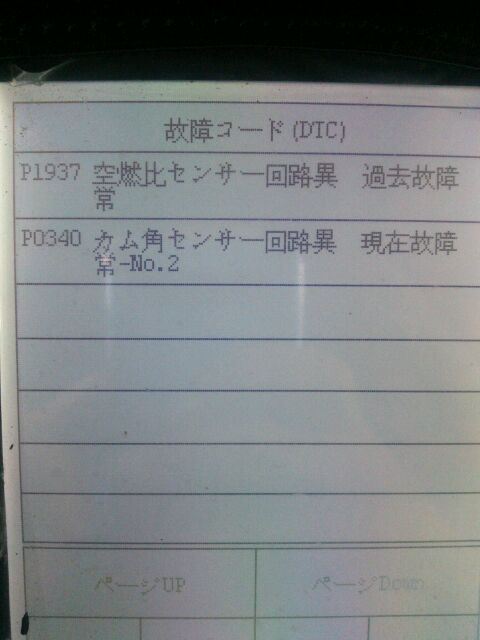 故障コード(DTC)
P1937 空燃比センサー回路異 過去故障
常
P0340 カム角センサー回路異 現在故障
常-No.2
ページUP ページDown